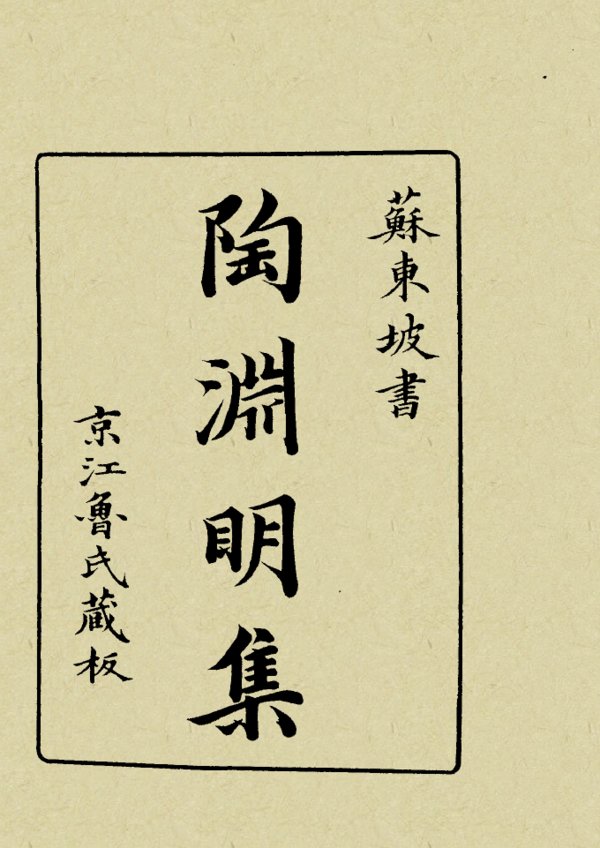 蘇東坡書
陶淵明集
京江魯氏蔵板